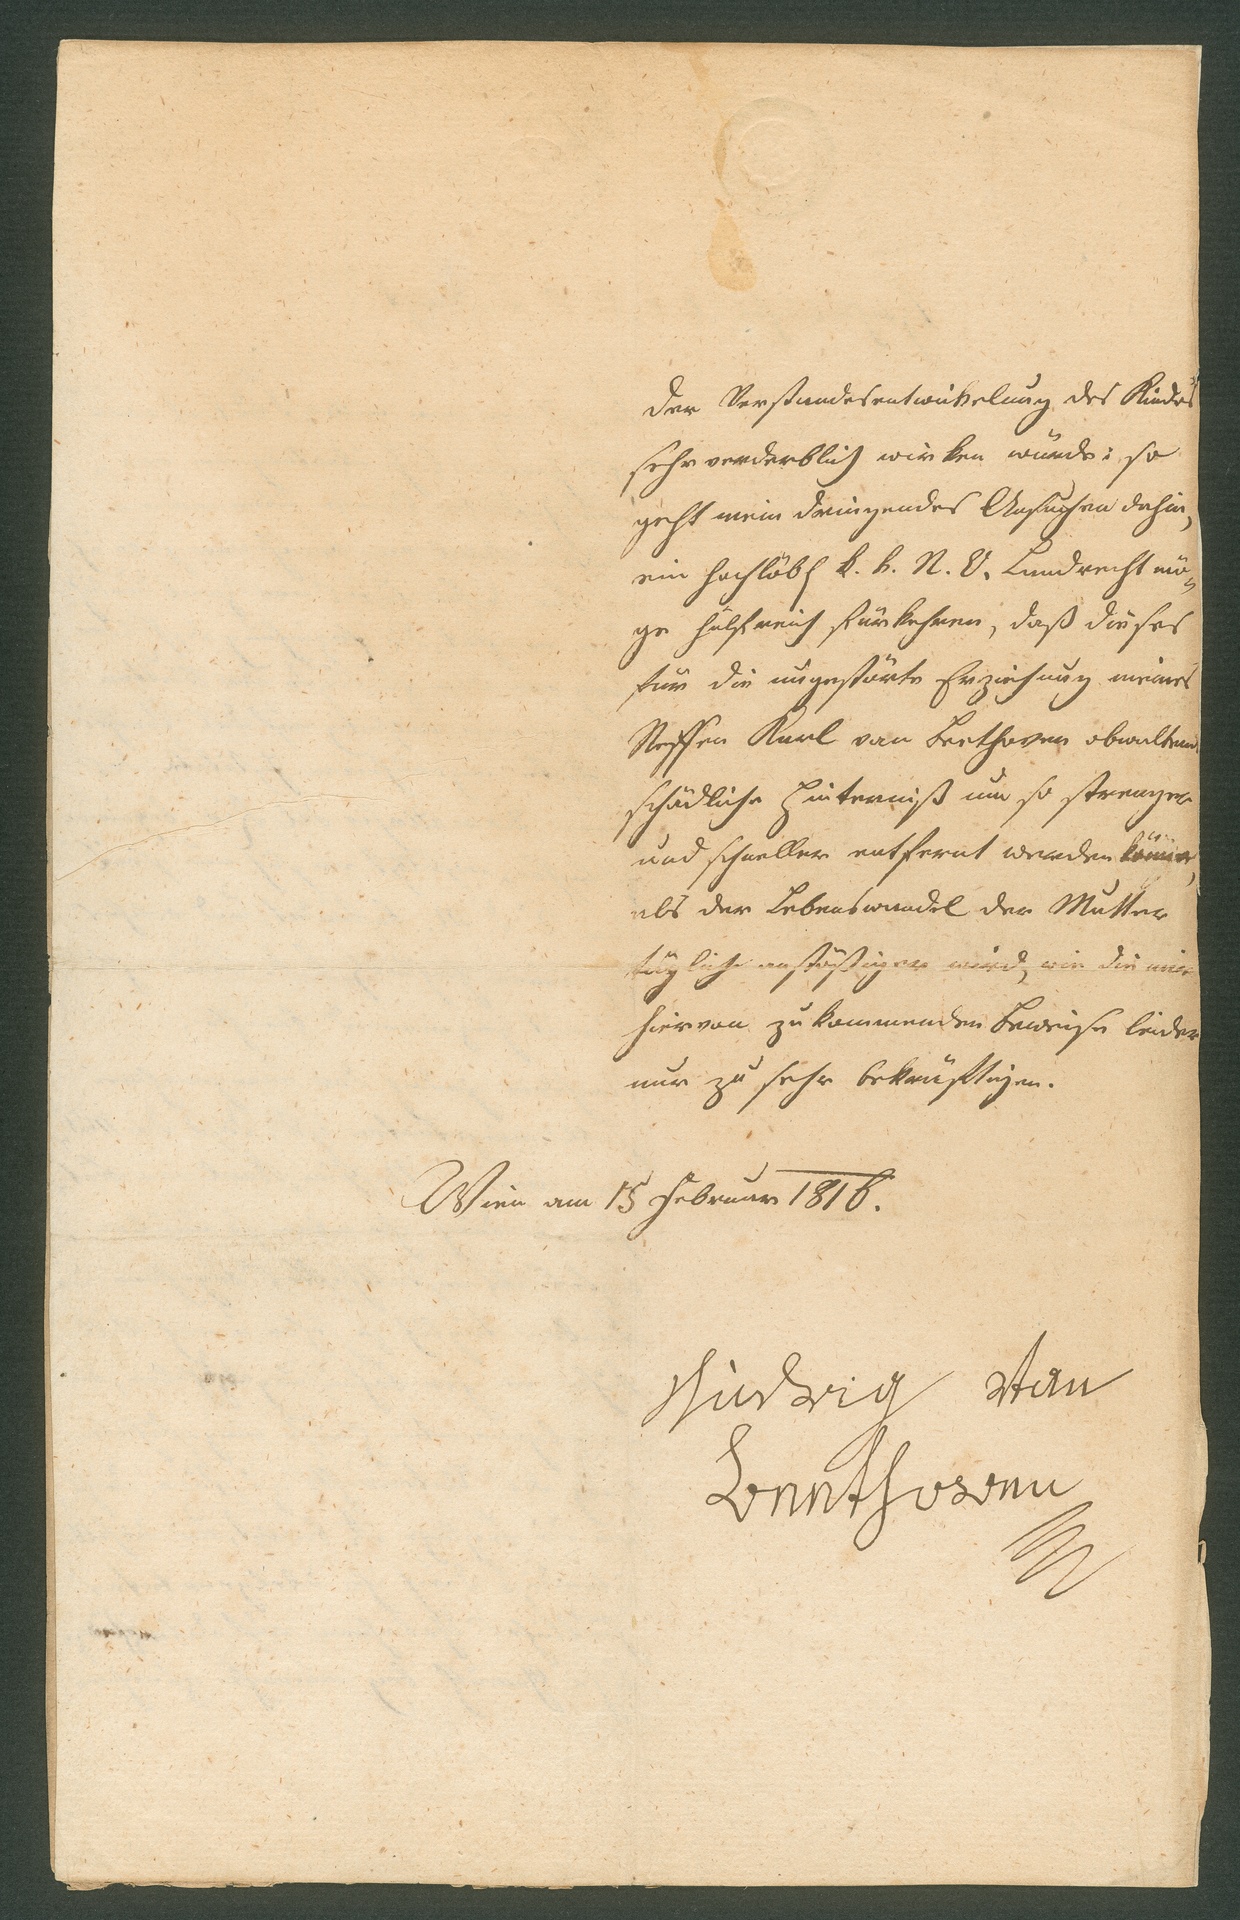 der Verstandesentwickelung des Kindes
sehr verderblich wirken würde: so
geht mein dringendes Ansuchen dahin,
ein hochlöbl k. k. N. Ö. Landrecht mö-
ge hülfreich fürkehren, daß dieses
für die ungestörte Erziehung meines
Neffen Karl van Beethoven obwaltend
schädliche Hinterniß um so strenger
und schneller entfernt werden könne,
als der Lebenswandel der Mutter
täglich anstößiger wird, wie die mir
hiervon zukommenden Beweise leider
nur zu sehr bekräftigen.
Wien am 15 Februar 1816.
Ludwig van
Beethoven